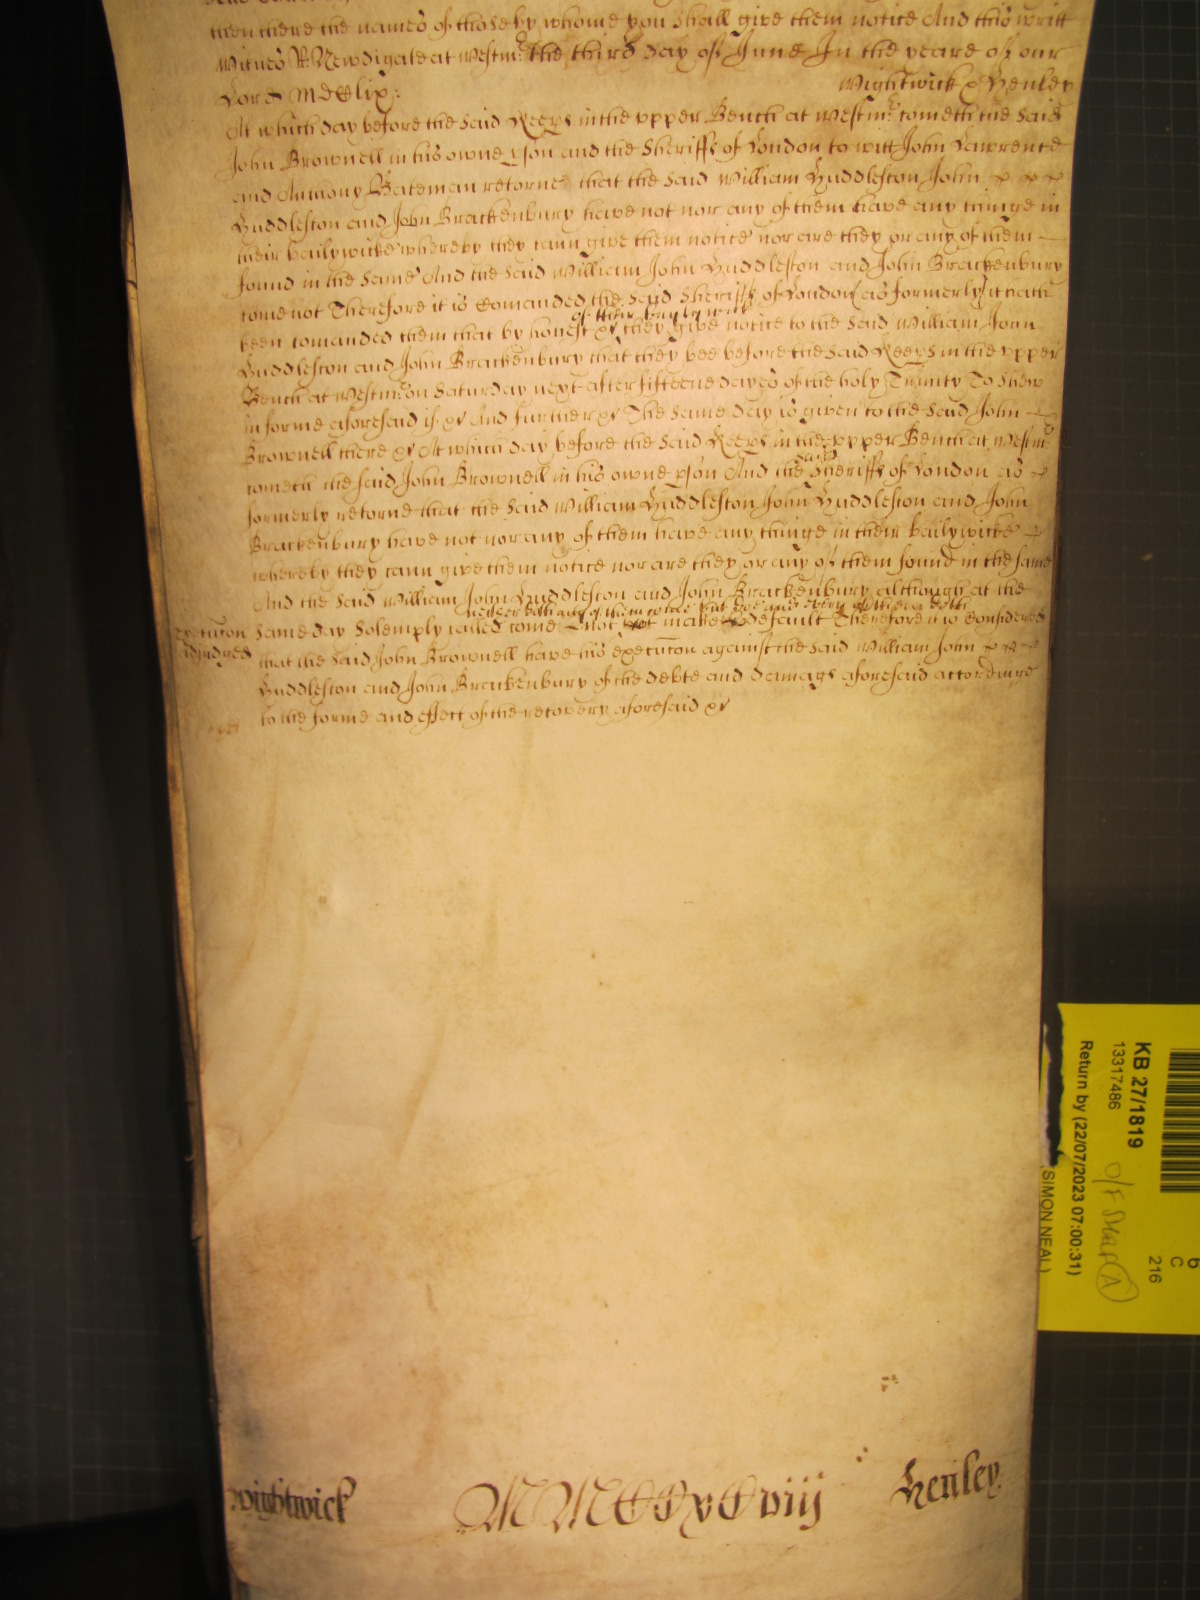 then there the names of those by whome you shall give them notice And this writt
Witnes R: Newdigate at Westmr the third day of June In the yeare of our
Lord MDCLIX: Wightwick & Henley
At which day before the said Keeps in the vpper Bench at Westmr cometh the said
John Brownell in his owne pson and the Sheriffs of London to witt John Lawrence
and Anthony Bateman retorne that the said William Huddleston John
Huddleston and John Brackenbury have not nor any of them have any thinge in
their bailywicke whereby they cann give them notice nor are they or any of them
found in the same And the said William John Huddleston and John Brackenbury
come not Therefore it is Comanded the said Sheriffs of London (as formerly) it hath
of their baylywick
been comanded them that by honest xr they give notice to the said William John
Huddleston and John Brackenbury that they bee before the said Keeps in the vpper
Bench at Westmr on Saturday next after fifteene dayes of the holy Trinity To shew
in forme aforesaid if xr And further xr The same day is given to the said John
Brownell there xr At which day before the said Keeps in the vpper Bench at Westmr
cometh the said John Brownell in his owne pson And the said Sheriffs of London as
formerly retorne that the said William Huddleston John Huddleston and John
Brackenbury have not nor any of them have any thinge in their bailywicke
whereby they cann give them notice nor are they or any of them found in the same
And the said William John Huddleston and John Brackenbury although at the
neither doth any of them come but doe and every of them doth
same day Solemply called come not make default Therefore it is Considered
Execucon
adiudged
that the said John Brownell have his execucon against the said William John
Huddleston and John Brackenbury of the debte and damags aforesaid accordinge
to the forme and effect of the recovery aforesaid xr
Wightwick
Henley
KB 27/1819
13317486
Return by (22/07/2023 07:00:31)
(SIMON NEAL)
216
6
C
A